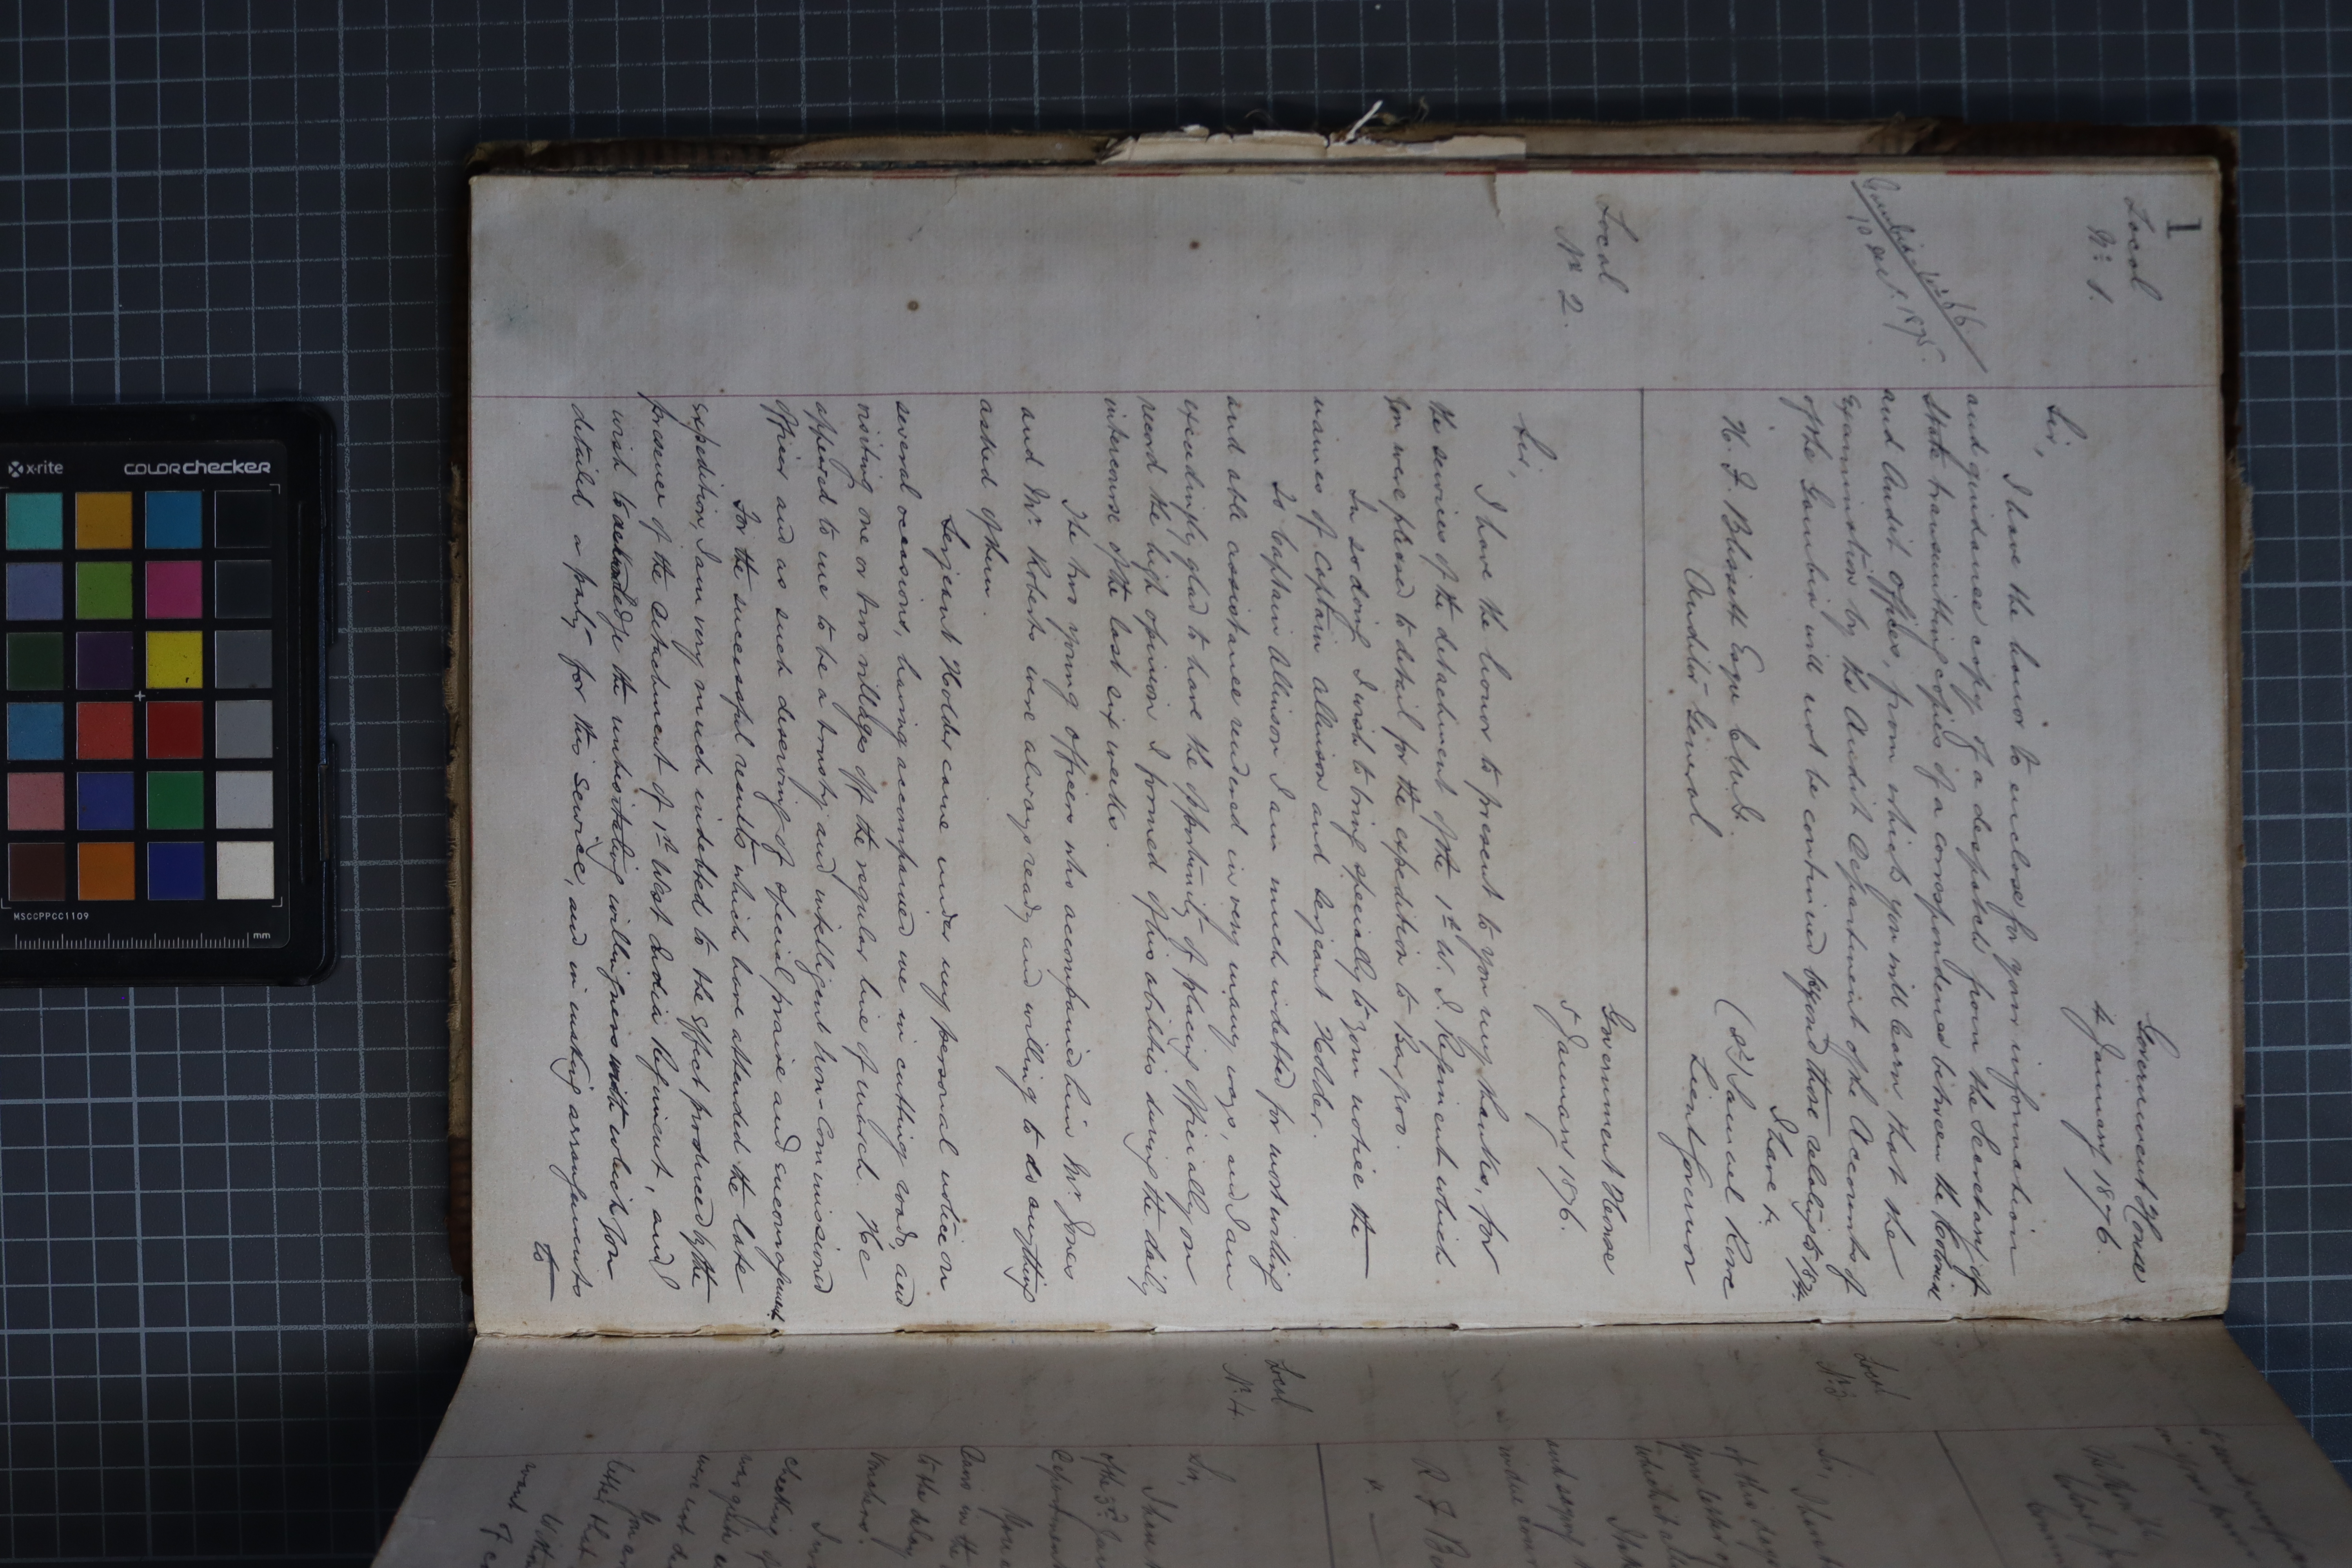 1
Local
No. 1.
Government House
4 January 1876.
Sir,
I have the honor to enclose for your information
and guidance copy of a despatch from the Secretary of
State transmitting copies of a correspondence between the Colonial
and Audit offices, from which you will learn that the
Examination by the Audit Department of the Accounts of
of the Gambia will not be continued beyond those relating to 1874.
Gambia No 56
10 1875.
I have &c.
(sd) Samuel Rowe
Lieut Governor
H. F. Blissett Esqre C.M.G.
Auditor General.
Local
No 2.
Government House
5 January 1876.
Sir,
I have the honor to present to you my thanks, for
the services of the detachment of the 1st W. I. Regiment which
you were pleased to detail for the expedition to Bargroo.
In so doing I wish to bring specially to your notice the
names of Captain Allinson and Serjeant Holder.
To Captain Allinson I am much indebted for most willing
and able assistance rendered in very many ways, and I am
exceedingly glad to have the opportunity of placing officially on
record the high opinion I formed of his abilities during the daily
intercourse of the last six weeks.
The two young officers who accompanied him Mr. Jones
and Mr. Roberts were always ready and willing to do anything
asked of them.
Serjeant Holder came under my personal notice on
several occasions, having accompanied me in cutting roads, and
visiting one or two villages off the regular line of march. He
appeared to me to be a trusty and intelligent Non-Commissioned
officer and as such deserving of special praise and encouragement.
For the successful results which have attended the late
expedition, I am very much indebted to the effect produced by the
presence of the detachment of 1st West India Regiment, and I
wish to acknowledge the unhesitating willingness with which you
detailed a party for this service, and in making arrangements
to
Local
No 3
Sir,
I have
of this day
your letter of
which
I have
R F B
Local
No. 4
Sir,
I have
of the 3rd Jan
Department
to the delay
Vouchers.
checking of
letter that
want of
x-rite
colorchecker
MSCCPPCC1109
mm